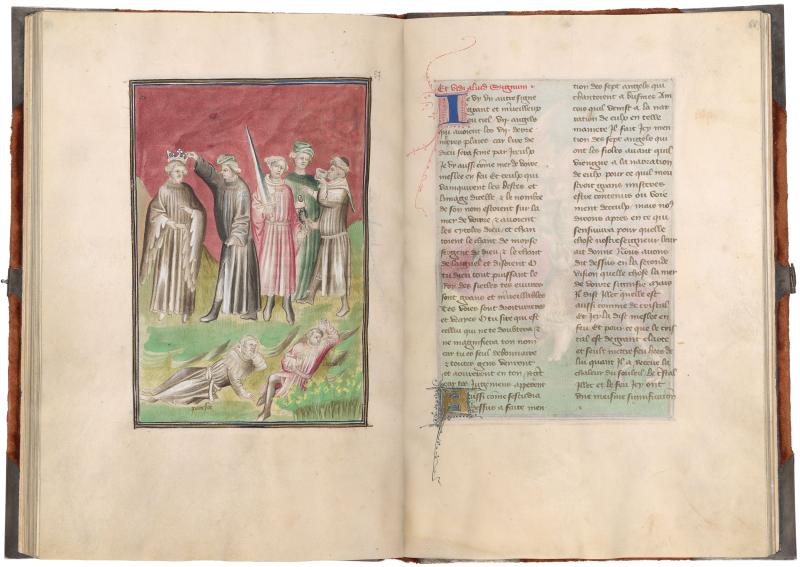 Et vidi aliud Signum
Ie vy vn autre signe
grant et merueilleux
ou ciel vii angels
qui auoient les vii derre
nieres plaies car lire de
dieu sera fenie par iceulx
Je vy aussi cõme mer de voirre
meslee en feu et ceulx qui
vainquirent les bestes et
lymage dicelle & le nombre
de son nom estoient sur la
mer de voirre & auoient
les cytoles dieu et chan
toient le chant de moyse
sergent de dieu & le chant
de laignel et disoient O
tu dieu tout puissant le
Roy des siecles tes euures
sont grans et merueilleuses
Tes voies sont droicturieres
et vraies O tu sire qui est
cellui qui ne te doubtera &
ne magnifiera ton nom
car tu es seul debonnaire
& toutes gens venront
et aoureront en ton
car tes Jugemens apperent
Aussi come se
dessus a faite men
tion des sept angels qui
chanterent a
cois quil venist a la nar
ration de ceulx en telle
maniere Il fait Icy men
tion des sept angels qui
ont les fioles auant quil
viengne a la narration
de ceulx pour ce quil mou
stroit grans misteres
estre contenus ou vrie
ment deceulx mais nos
dirons apres en ce qui
sensuiura pour quelle
chose nostre seigneur leur
ait donne Nous auons
dit dessus en la seconde
vision quelle chose la mer
de voirre signifie mais
Il dist Illec quelle est
aussi comme de cristal
et Icy la dist meslee en
feu Et pour ce que le cris
tal est de grant clarte
et seult mettre feu hors de
lui quant Il a receu la
chaleur du souleil Le cristal
Illec et le feu Icy ont
vne meisme signification